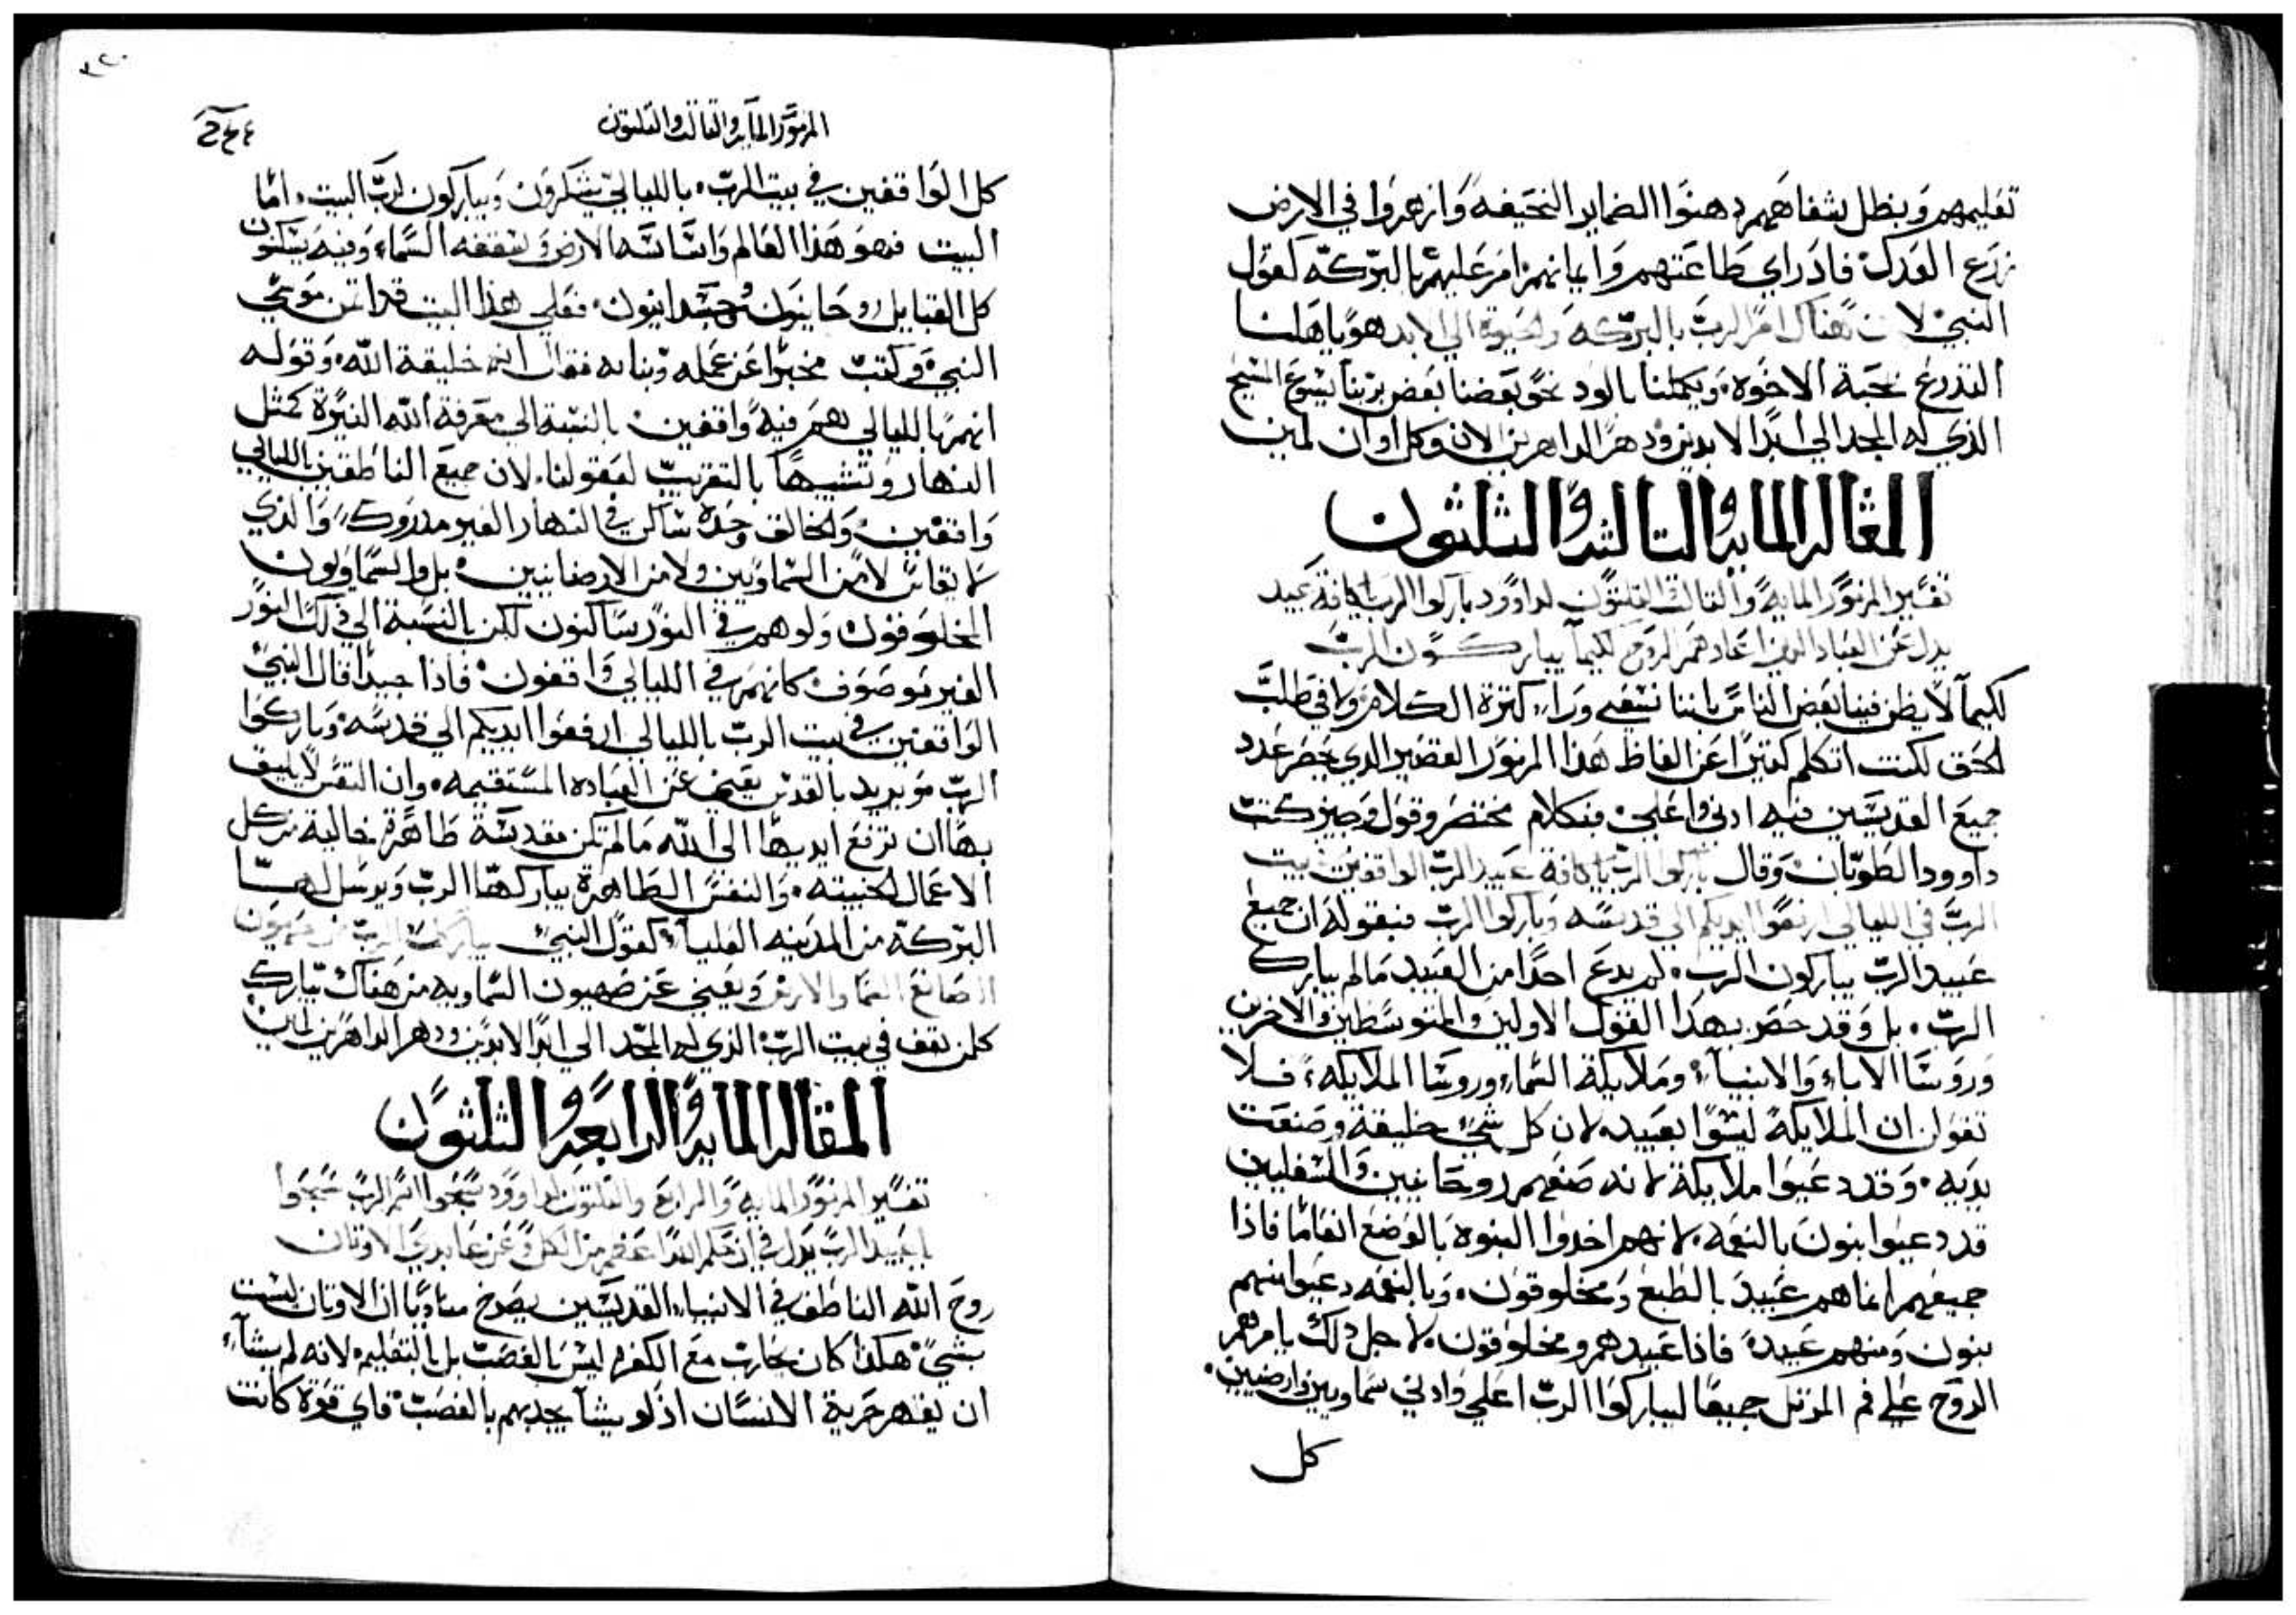 تعليمهم وبظل شفاههم دهنوا الضماير النحيفه وازهروا في الارض
زرع العدل فاذ راي طاعتهم وايمانهم امر عليهم بالبركه كقول
النبي لان هناك امر الرب بالبركه والحيوة الي الابد هو ياهلنا
التدرع بمحبة الاخوة ويكملنا بالود نحو بعضنا بعض بربنا يسوع المسيح
الذي له المجد الي ابد الابدين ودهر الداهرين الان وكل اوان امين
المقاله المايه والتالته والتلتون
تفسير المزمور المايه والتالت والتلتون لداوود باركوا الرب ياكافة عبيد
يدل عن العباد الدين اعادهم الروح لكيما يباركون الرب
لكيما لا يظن فينا بعض الناس باننا نسعي وراء كترة الكلام ولا في طلب
الحق لكنت اتكلم كتيرا عن الفاظ هذا المزمور القصير الدي يحصر عدد
جميع القديسين فيه ادني واعلي فبكلام مختصر وقول وجيز كتب
داوود الطوبان وقال باركوا الرب ياكافة عبيد الرب الواقفين في بيت
الرب في الليالي ارفعوا ايديكم الي قدسه وباركوا الرب فبقوله ان جميع
عبيد الرب يباركون الرب لم يدع احدا من العبيد مالم يبارك
الرب بل وقد حصر بهذا القول الاولين والمتوسطين والاخرين
وروسا الاباء والانبياء وملايكة السماء وروسا الملايكه فلا
تقول ان الملايكة ليسوا بعبيد لان كل شي خليقة وصنعت
يديه وقد دعيوا ملايكة لانه صنعهم روحانيين والسفليين
قد دعيوا بنون بالنعمه لانهم اخدوا البنوة بالوضع انعاما فاذا
جميعهم انما هم عبيد بالطبع ومخلوقون وبالنعمه دعيوا منهم
بنون ومنهم عبيد فاذا عبيد هم ومخلوقون لاجل ذلك يامرهم
الروح علي فم المرتل جميعا ليباركوا الرب اعلي وادني سماويين وارضيين
كل
المزمور المايه والتالت والتلتون
كل الواقفين في بيت الرب بالليالي يشكرون ويباركون لرب البيت اما
البيت فهو هذا العالم واساسه الارض وسقفه السماء وفيه يسكنون
كل القبايل روحانيون وجسدانيون فعلي هذا البيت قد اتمن موسي
النبي وكتب مخبرا عن عمله وبنايه فقال انه خليقة الله وقوله
انهم بالليالي هم فيه واقفين بالنسبة الي معرفة الله النيرة كمتل
النهار وتشبيها بالتقريب لعقولنا لان جميع الناطقين بالليالي
واقفين والخالق وحده ساكن في النهار الغير مدروك والذي
لا يعاين لا من السماويين ولا من الارضانيين بل والسماويون
المخلوقون ولو هم في النور ساكنون لكن بالنسبة الي ذلك النور
الغير موصوف كانهم في الليالي واقفون فاذا جيدا قال النبي
الواقفين في بيت الرب بالليالي ارفعوا ايديكم الي قدسه وباركوا
الرب مويريد بالقدس يعني عن العباده المستقيمه وان النفس لا يليق
بها ان ترفع ايديها الي الله مالم تكن مقدسة طاهرة خالية من كل
الاعمال الخبيته والنفس الطاهرة يباركها الرب ويرسل لها
البركة من المدينه العليا كقول النبي يباركك الرب من صهيون
الصانع السما والارض ويعني عن صهيون السماويه من هناك تبارك
كلمن يقف في بيت الرب الذي له المجد الي ابد الابدين ودهر الداهرين امين
المقاله المايه والرابعه والتلتون
تفسير المزمور المايه والرابع والتلتون لداوود سبحوا اسم الرب سبحوا
ياعبيد الرب
روح الله الناطق في الانبياء القديسين يصرخ مناديا ان الاوتان ليست
بشي هكذا كان يحارب مع الكفر ليس بالغصب بل بالتعليم لانه لم يشاء
ان يقهر حرية الانسان اذ لو يشا يجدبهم بالغصب فاي قوة كانت